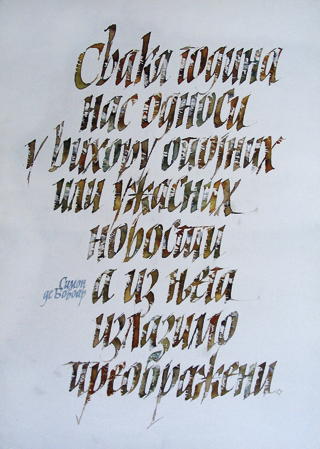 Свака година
нас односи
у вихору опојних
или ужасних
новости
Симон
де Бовоар
а из њега
излазимо
преображени.